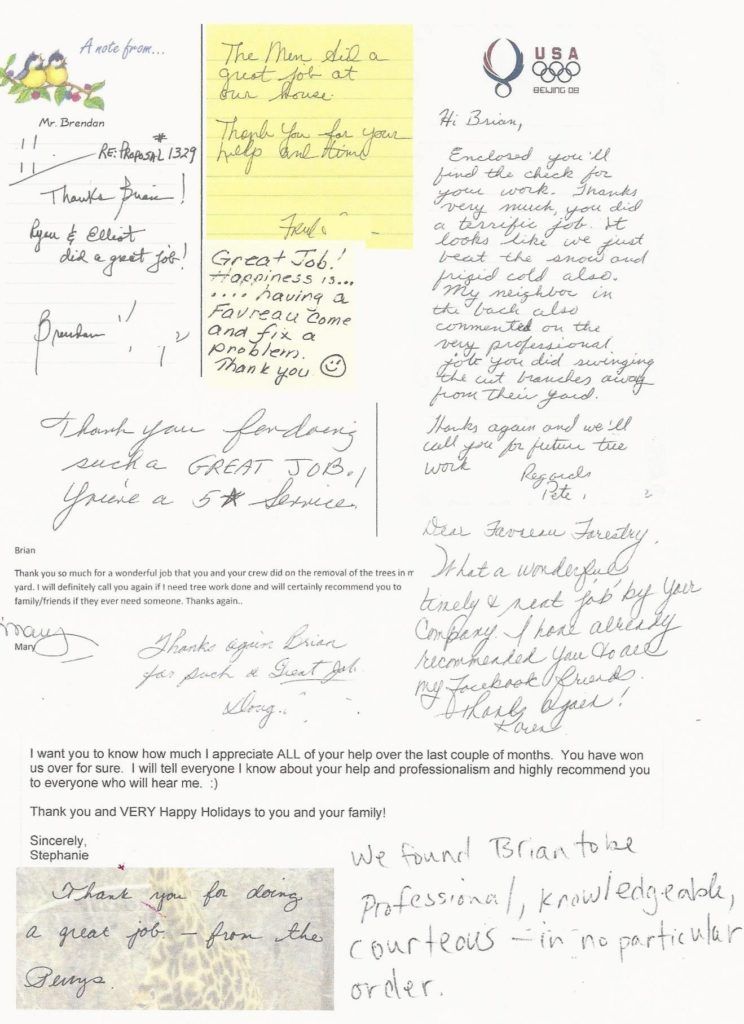 A note from...
Mr. Brendan
RE: PROPOSAL # 1329
Thanks Brian!
Ryan & Elliot
did a great job!
Brendan
The Men did a
great job at
our house.
Thank You for your
help and time
Great Job!
Happiness is...
.... having a
Favreau come
and fix a
problem.
Thank you ☺
USA
BEIJING 08
Hi Brian,
Enclosed you'll
find the check for
your work. Thanks
very much, you did
a terrific job. It
looks like we just
beat the snow and
frigid cold also.
My neighbor in
the back also
commented on the
very professional
job you did swinging
the cut branches away
from their yard.
Thanks again and we'll
call you for future tree
work
Regards
Pete
Thank you for doing
such a GREAT JOB!
You're a 5★ Service.
Brian
Thank you so much for a wonderful job that you and your crew did on the removal of the trees in m
yard. I will definitely call you again if I need tree work done and will certainly recommend you to
family/friends if they ever need someone. Thanks again..
Mary
Mary
Thanks again Brian
for such a Great Job.
Doug
Dear Favreau Forestry,
What a wonderful
timely & neat job by your
Company. I have already
recommended you to all
my Facebook friends.
Thanks again!
Karen
I want you to know how much I appreciate ALL of your help over the last couple of months. You have won
us over for sure. I will tell everyone I know about your help and professionalism and highly recommend you
to everyone who will hear me. :)
Thank you and VERY Happy Holidays to you and your family!
Sincerely,
Stephanie
Thank you for doing
a great job - from the
Perrys.
We found Brian to be
Professional, knowledgeable,
courteous - in no particular
order.